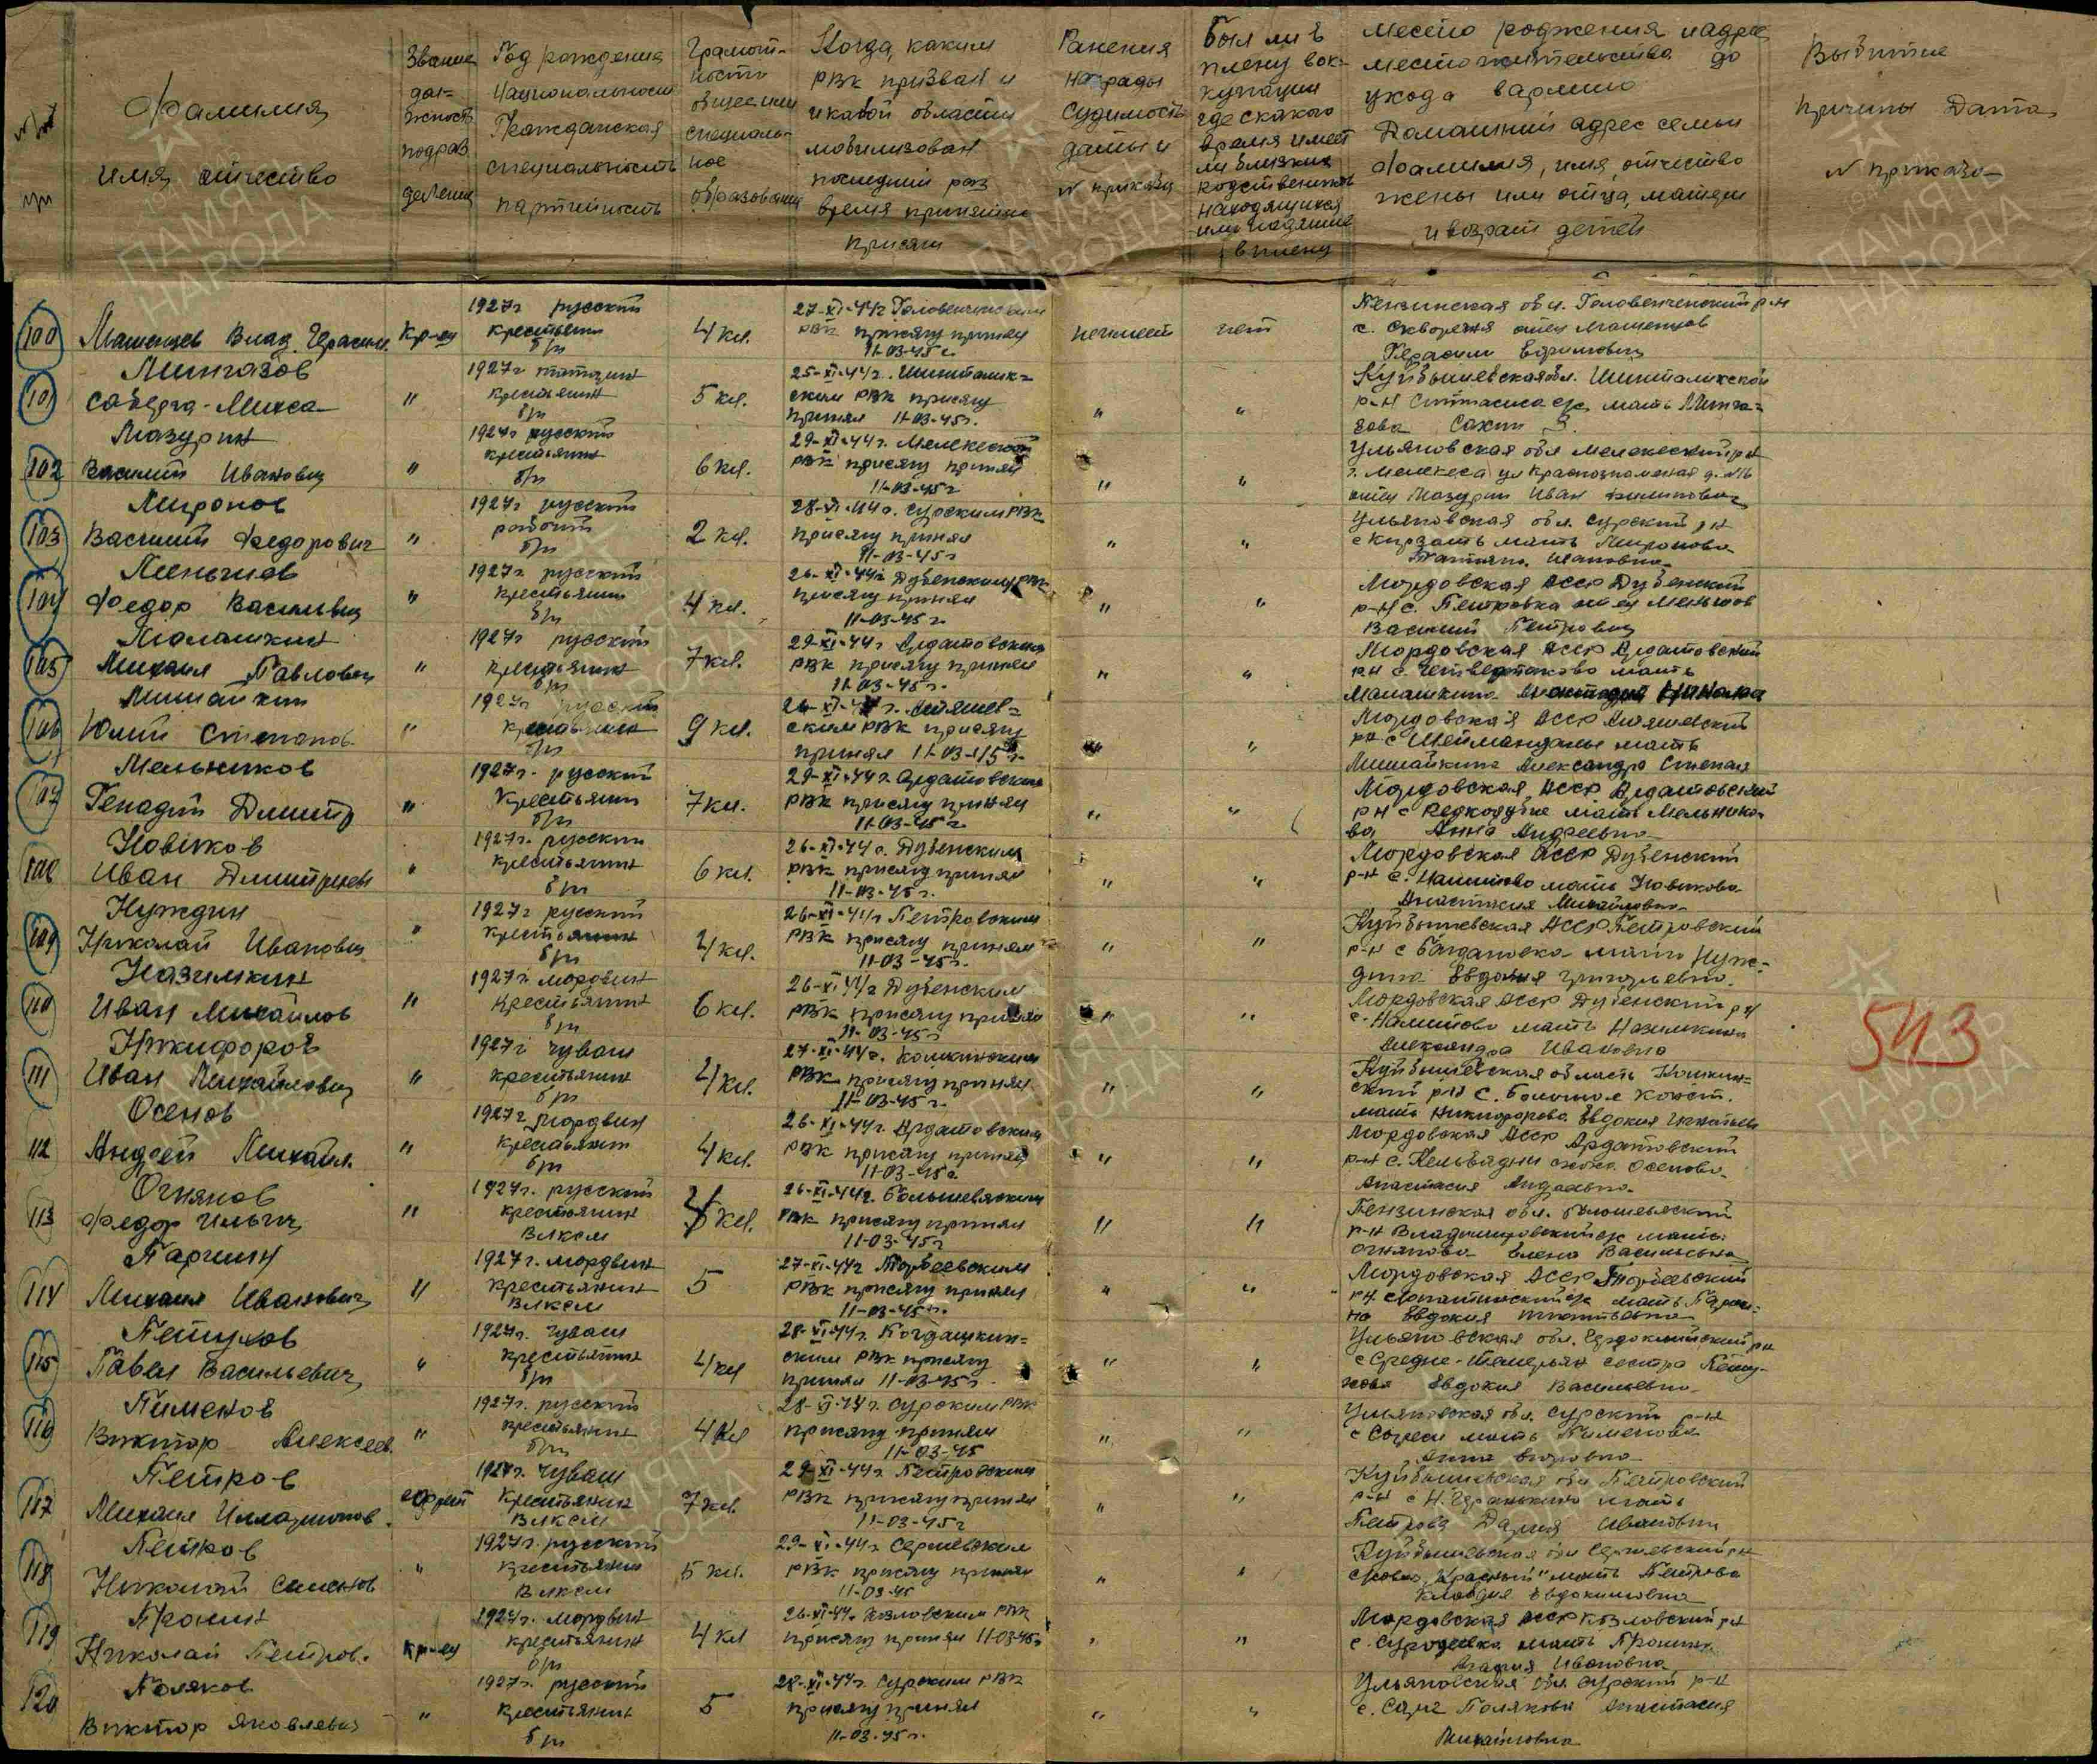 №№
пп
Фамилия
имя отчество
Звание
дол=
жность
подраз
деление
Год рождения
национальность
Гражданская
специальность
партийность
Грамот-
ность
общее или
специаль-
ное
образование
Когда, каким
РВК призван и
и какой области
мобилизован
последний раз
время принятия
присяги
Ранения
Награды
Судимость
даты и
№ приказа
Был ли в
плену в ок-
купации
где с какого
время имеет
ли близких
родственников
находящихся
или
в плену
место рождения и адрес
место жительства до
ухода в армию
Домашний адрес семьи
фамилия, имя, отчество
жены или отца, матери
и возраст детей
Выбытие
причины Дата
№ приказа
100 Машенцев Влад. Герасим. кр-ец
1927г русский
крестьянин
б/п
4 кл.
27-XI-44г Головинщинским
РВК присягу принял
11-03-45г.
не имеет нет
Пензинская обл. р-н
с. отец Машенцов
Герасим Ефимович
101 Мингазов
"
1927г татарин
крестьянин
б/п
5 кл.
25-XI-44г. Шенталин-
ским РВК присягу
принял 11-03-45г.
" "
Куйбышевская обл. Шенталинский
р-н мать Минга=
зова
102 Мазурин
Василий Иванович "
1927г русский
крестьянин
б/п
6 кл.
29-XI-44г. Мелекесским
РВК присягу принял
11-03-45г
" "
Ульяновская обл мелекесский р-н
г. Мелекеса ул Краснознаменая
отец Мазурин Иван Филипович
103 Миронов
Василий Федорович "
1927г русский
рабочий
б/п
2 кл.
28-XI-44г. сурским РВК
присягу принял
11-03-45г
" "
Ульяновская обл. сурский р-н
с Кирзать мать Миронова
Татьяна Ивановна
104 Меньшов
Федор Васильевич "
1927г. русский
крестьянин
б/п
4 кл.
26-XI-44г Дубенским РВК
присягу принял
11-03-45г.
" "
Мордовская АССР Дубенский
р-н с. Петровка отец Меньшов
Василий Петрович
105 Малашкин
Михаил Павлович "
1927г русский
крестьянин
б/п
7 кл.
29-XI-44г Ардатовским
РВК присягу принял
11-03-45г.
" "
Мордовская АССР Ардатовский
р-н с. Четвертаково мать
Малашкина
106 Мишайкин
Юлий Степанов. "
1927г русский
крестьянин
б/п
9 кл.
Атяшев=
ским РВК присягу
принял 11-03-45г.
" "
Мордовская АССР Атяшевский
р-н с Шейманданы мать
Мишайкина Александра Степан
107 Мельников
Генадий Дмитр "
1927г. русский
крестьянин
б/п
7 кл.
29-XI-44г. Ардатовским
РВК присягу принял
11-03-45г.
" "
Мордовская АССР Ардатовский
р-н с Редкодубье мать Мельнико-
ва Анна Андреевна
108 Новиков
Иван Дмитриев "
1927г. русский
крестьянин
б/п
6 кл.
26-XI-44г. Дубенским
РВК присягу принял
11-03-45г.
" "
Мордовская АССР Дубенский
р-н с. Налитово мать Новикова
Анастасия Михайловна
109 Нуждин
Николай Иванович "
1927г русский
крестьянин
б/п
4 кл.
26-XI-44г Петровским
РВК присягу принял
11-03-45г.
" "
Куйбышевская АССР Петровский
р-н с Богдановка мать Нуж-
дина Евдокия Григорьевна
110 Назимкин
Иван Михайлов "
1927г. мордвин
крестьянин
б/п
6 кл.
26-XI 44г Дубенским
РВК присягу принял
11-03-45г
" "
Мордовская АССР Дубенский р-н
с. Налитово мать Назимкина
Александра Ивановна
111 Никифоров
Иван Михайлович "
1927г чуваш
крестьянин
б/п
4 кл.
27-XI-44г. Кошкинским
РВК присягу принял
11-03-45г.
" "
Куйбышевская область Кошкин=
ский р-н с. Большое Конст.
мать Никифорова Евдокия Игнатьев
112 Осенов
Андрей Михайл. "
1927г мордвин
крестьянин
б/п
4 кл.
26-XI-44г Ардатовским
РВК присягу принял
11-03-45г
" "
Мордовская АССР Ардатовский
р-н с. Кельвядни Осенова
Анастасия Андреевна
113 Огнянов
Федор Ильич "
1927г. русский
крестьянин
ВЛКСМ
кл.
26-XI-44г. Большевяским
РВК присягу принял
11-03-45г
" "
Пензинская обл. Большевьяский
р-н Владимировский с/с мать
Огнянова Елена Васильевна
114 Паршин
Михаил Иванович "
1927г. мордвин
крестьянин
ВЛКСМ
5
27-XI-44г Торбеевским
РВК присягу принял
11-03-45г.
" "
Мордовская АССР Торбеевский
р-н мать Парши=
на Евдокия Игнатьевна
115 Петухов
Павел Васильевич "
1927г. чуваш
крестьянин
б/п
4 кл
28-XI-44г.
ским РВК присягу
принял 11-03-45г.
" "
Ульяновская обл. р-н
с Средне-Темерьян сестра Пету-
хова Евдокия Васильевна
116 Пименов
Виктор Алексеев. "
1927г. русский
крестьянин
б/п
4 кл
28-XI-44г. сурским РВК
присягу принял
11-03-45
" "
Ульяновская обл. сурский р-н
с мать Пименова
Анна Егоровна
117 Петров
Михаил Илларионов. ефрейт
1927г. чуваш
крестьянин
ВЛКСМ
7 кл.
29-XI-44г. Петровским
РВК присягу принял
11-03-45г
" "
Куйбышевская обл Петровский
р-н с Н. Геранькино мать
Петрова Дария Ивановна
118 Петров
Николай Семенов "
1927г. русский
крестьянин
ВЛКСМ
5 кл.
29-XI-44г Сергиевским
РВК присягу принял
11-03-45
" "
Куйбышевская обл Сергиевский р-н
"Красный" мать Петрова
Клавдия Евдокимовна
119 Пронин
Николай Петров. кр-ец
1927г. мордвин
крестьянин
б/п
4 кл
26-XI-44г. Козловским РВК
присягу принял 11-03-45г
" "
Мордовская АССР Козловский р-н
с. Суродеевка мать Пронина
Мария Ивановна
120 Поляков
Виктор Яковлевич "
1927г. русский
крестьянин
б/п
5
28-XI-44г. Сурским РВК
присягу принял
11-03-45г.
" "
Ульяновская обл сурский р-н
с. Сара Полякова Анастасия
Михайловна
543
ПАМЯТЬ
НАРОДА